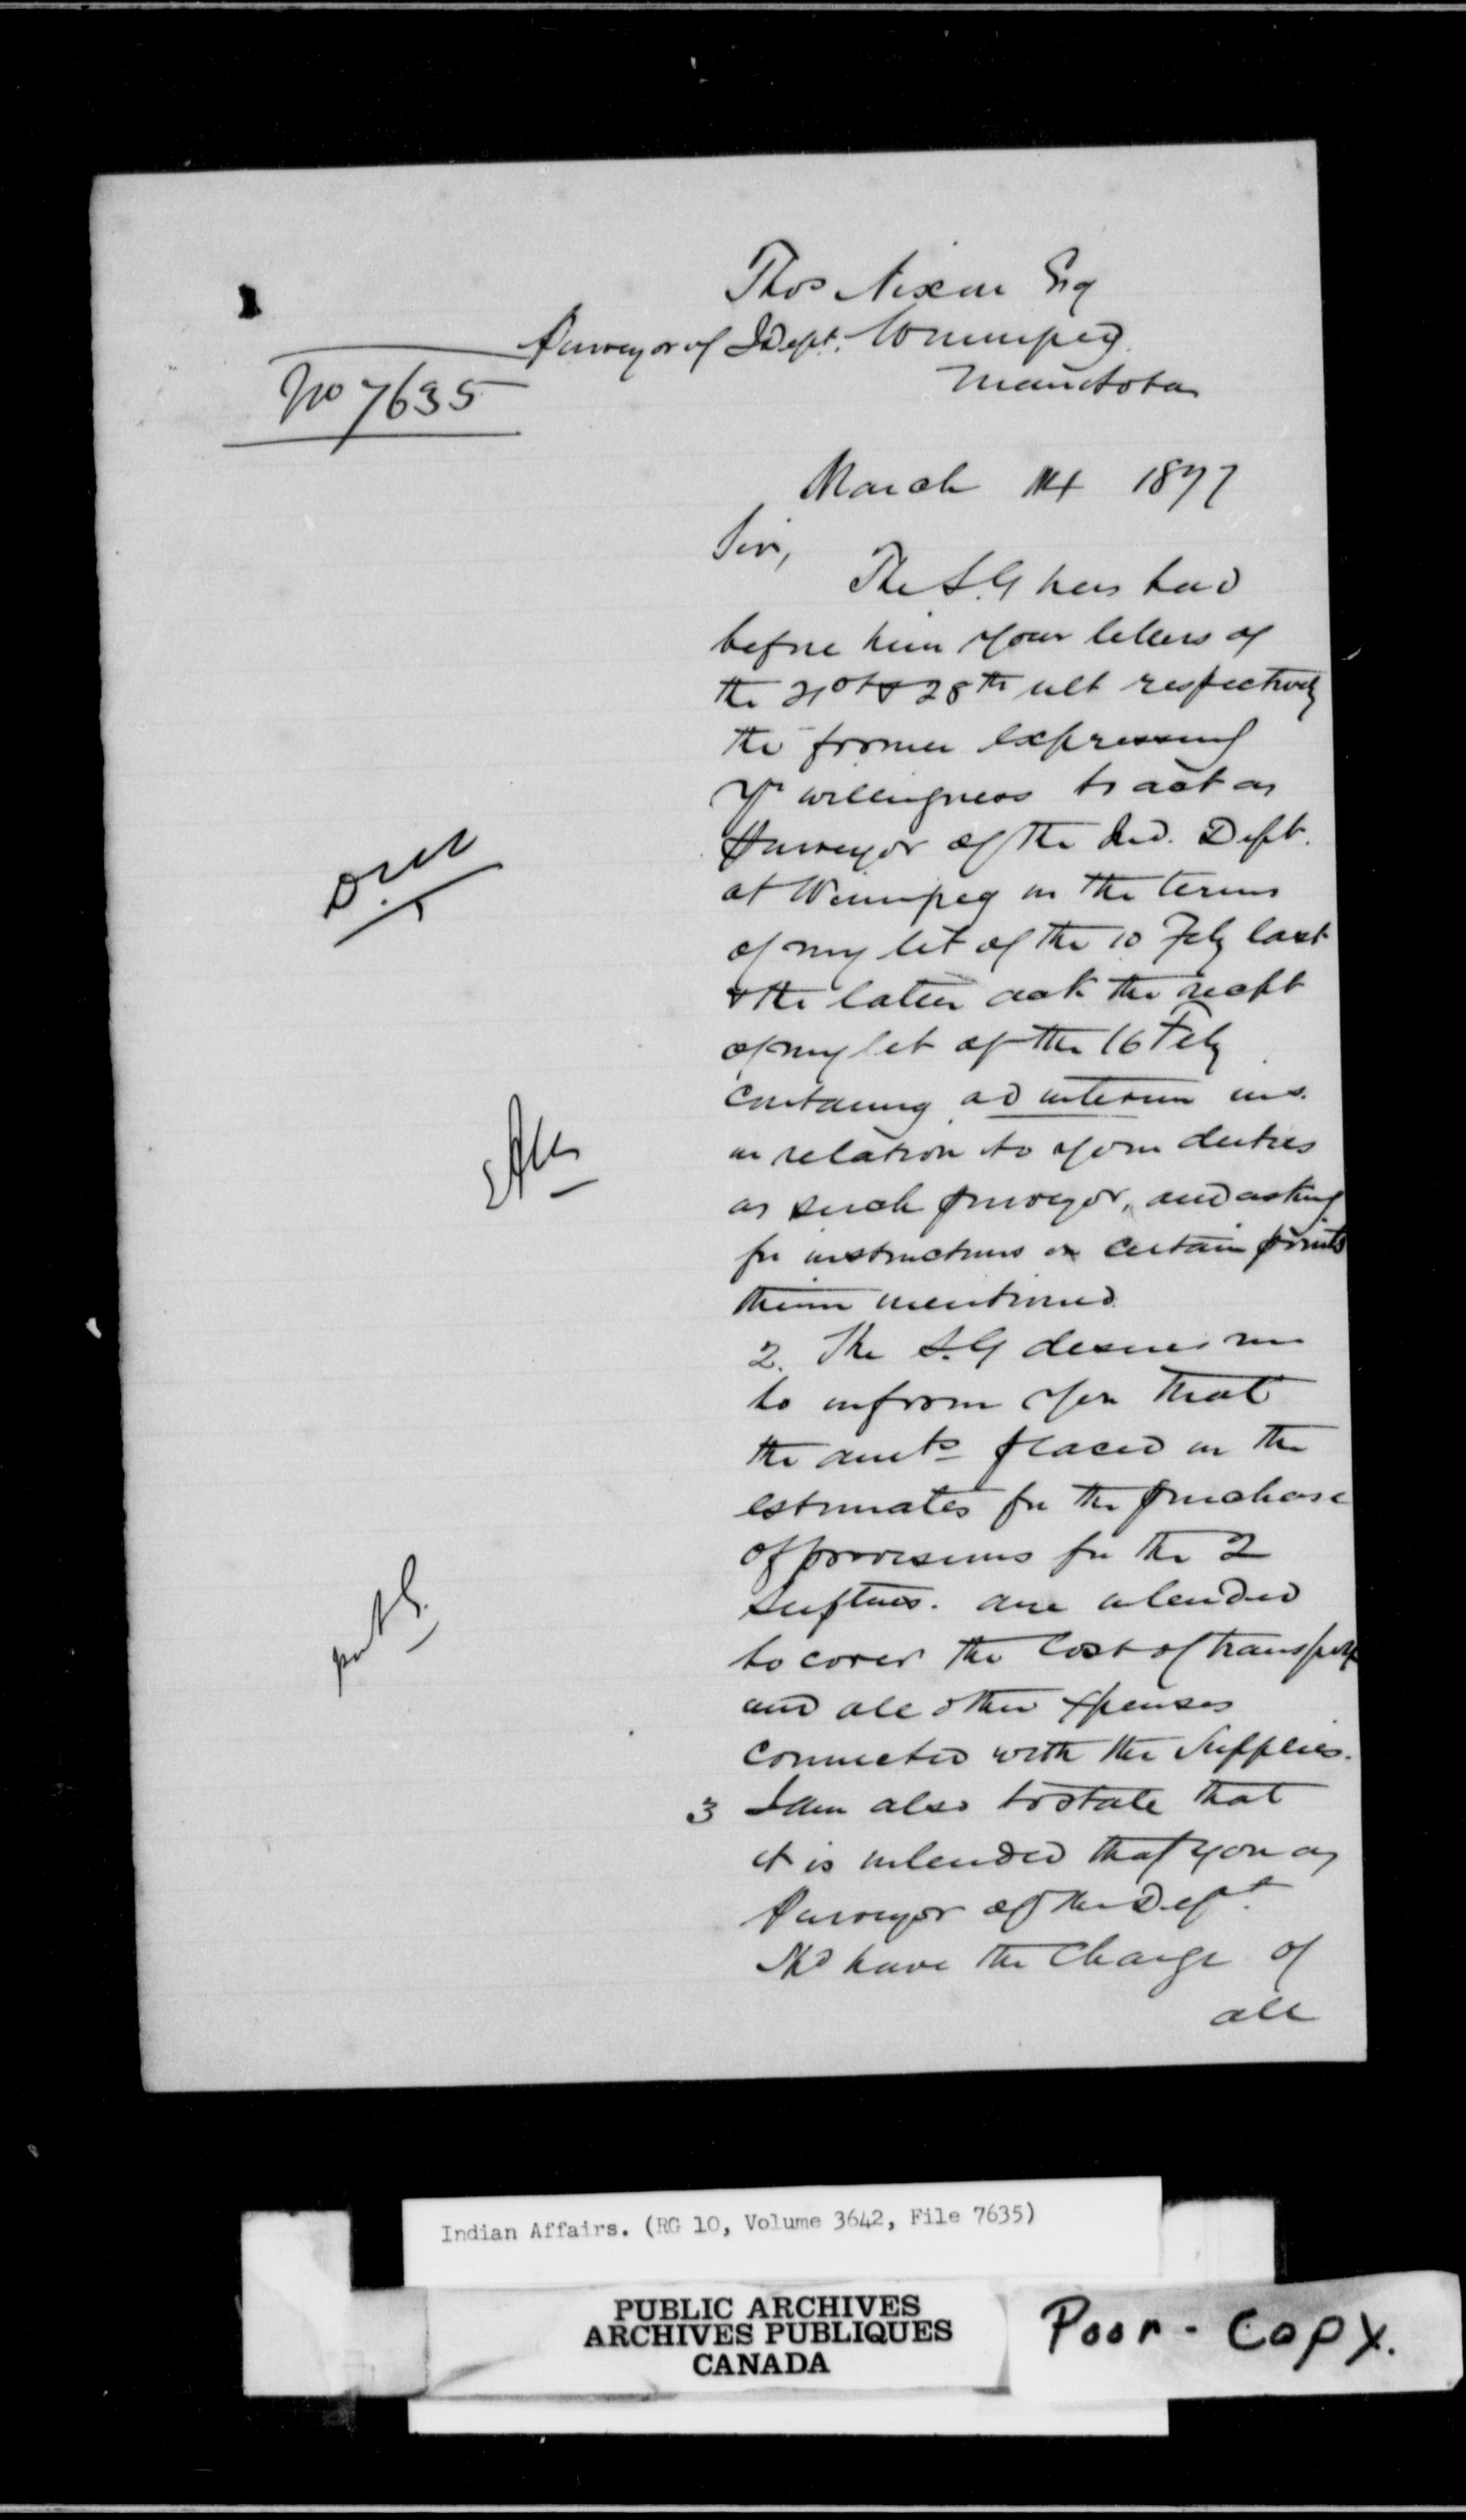 Thos Nixon Esq
Purveyor of I Dept. Winnipeg
Manitoba
No 7635
March 14 1877
Sir,
The S.G has had
before him your letters of
the 21st & 28th ult respectively
the former expressing
yr willingness to act as
Purveyor of the Ind. Dept.
at Winnipeg on the terms
of my let of the 10 Feby last
& the latter ack the recpt
of my let of the 16 Feby
containing ad interim ins.
in relation to your duties
as such purveyor, and asking
for instructions on certain points
therein mentioned.
2. The S.G desires me
to inform you that
the amts placed in the
estimates for the purchase
of provisions for the 2
Suptncs. are intended
to cover the cost of transport
and all other xpenses
connected with the Supplies.
3 I am also to state that
it is intended that you as
Purveyor of the Dept.
shd have the charge of
all
Indian Affairs. (RG 10, Volume 3642, File 7635)
PUBLIC ARCHIVES
ARCHIVES PUBLIQUES
CANADA
Poor - Copy.